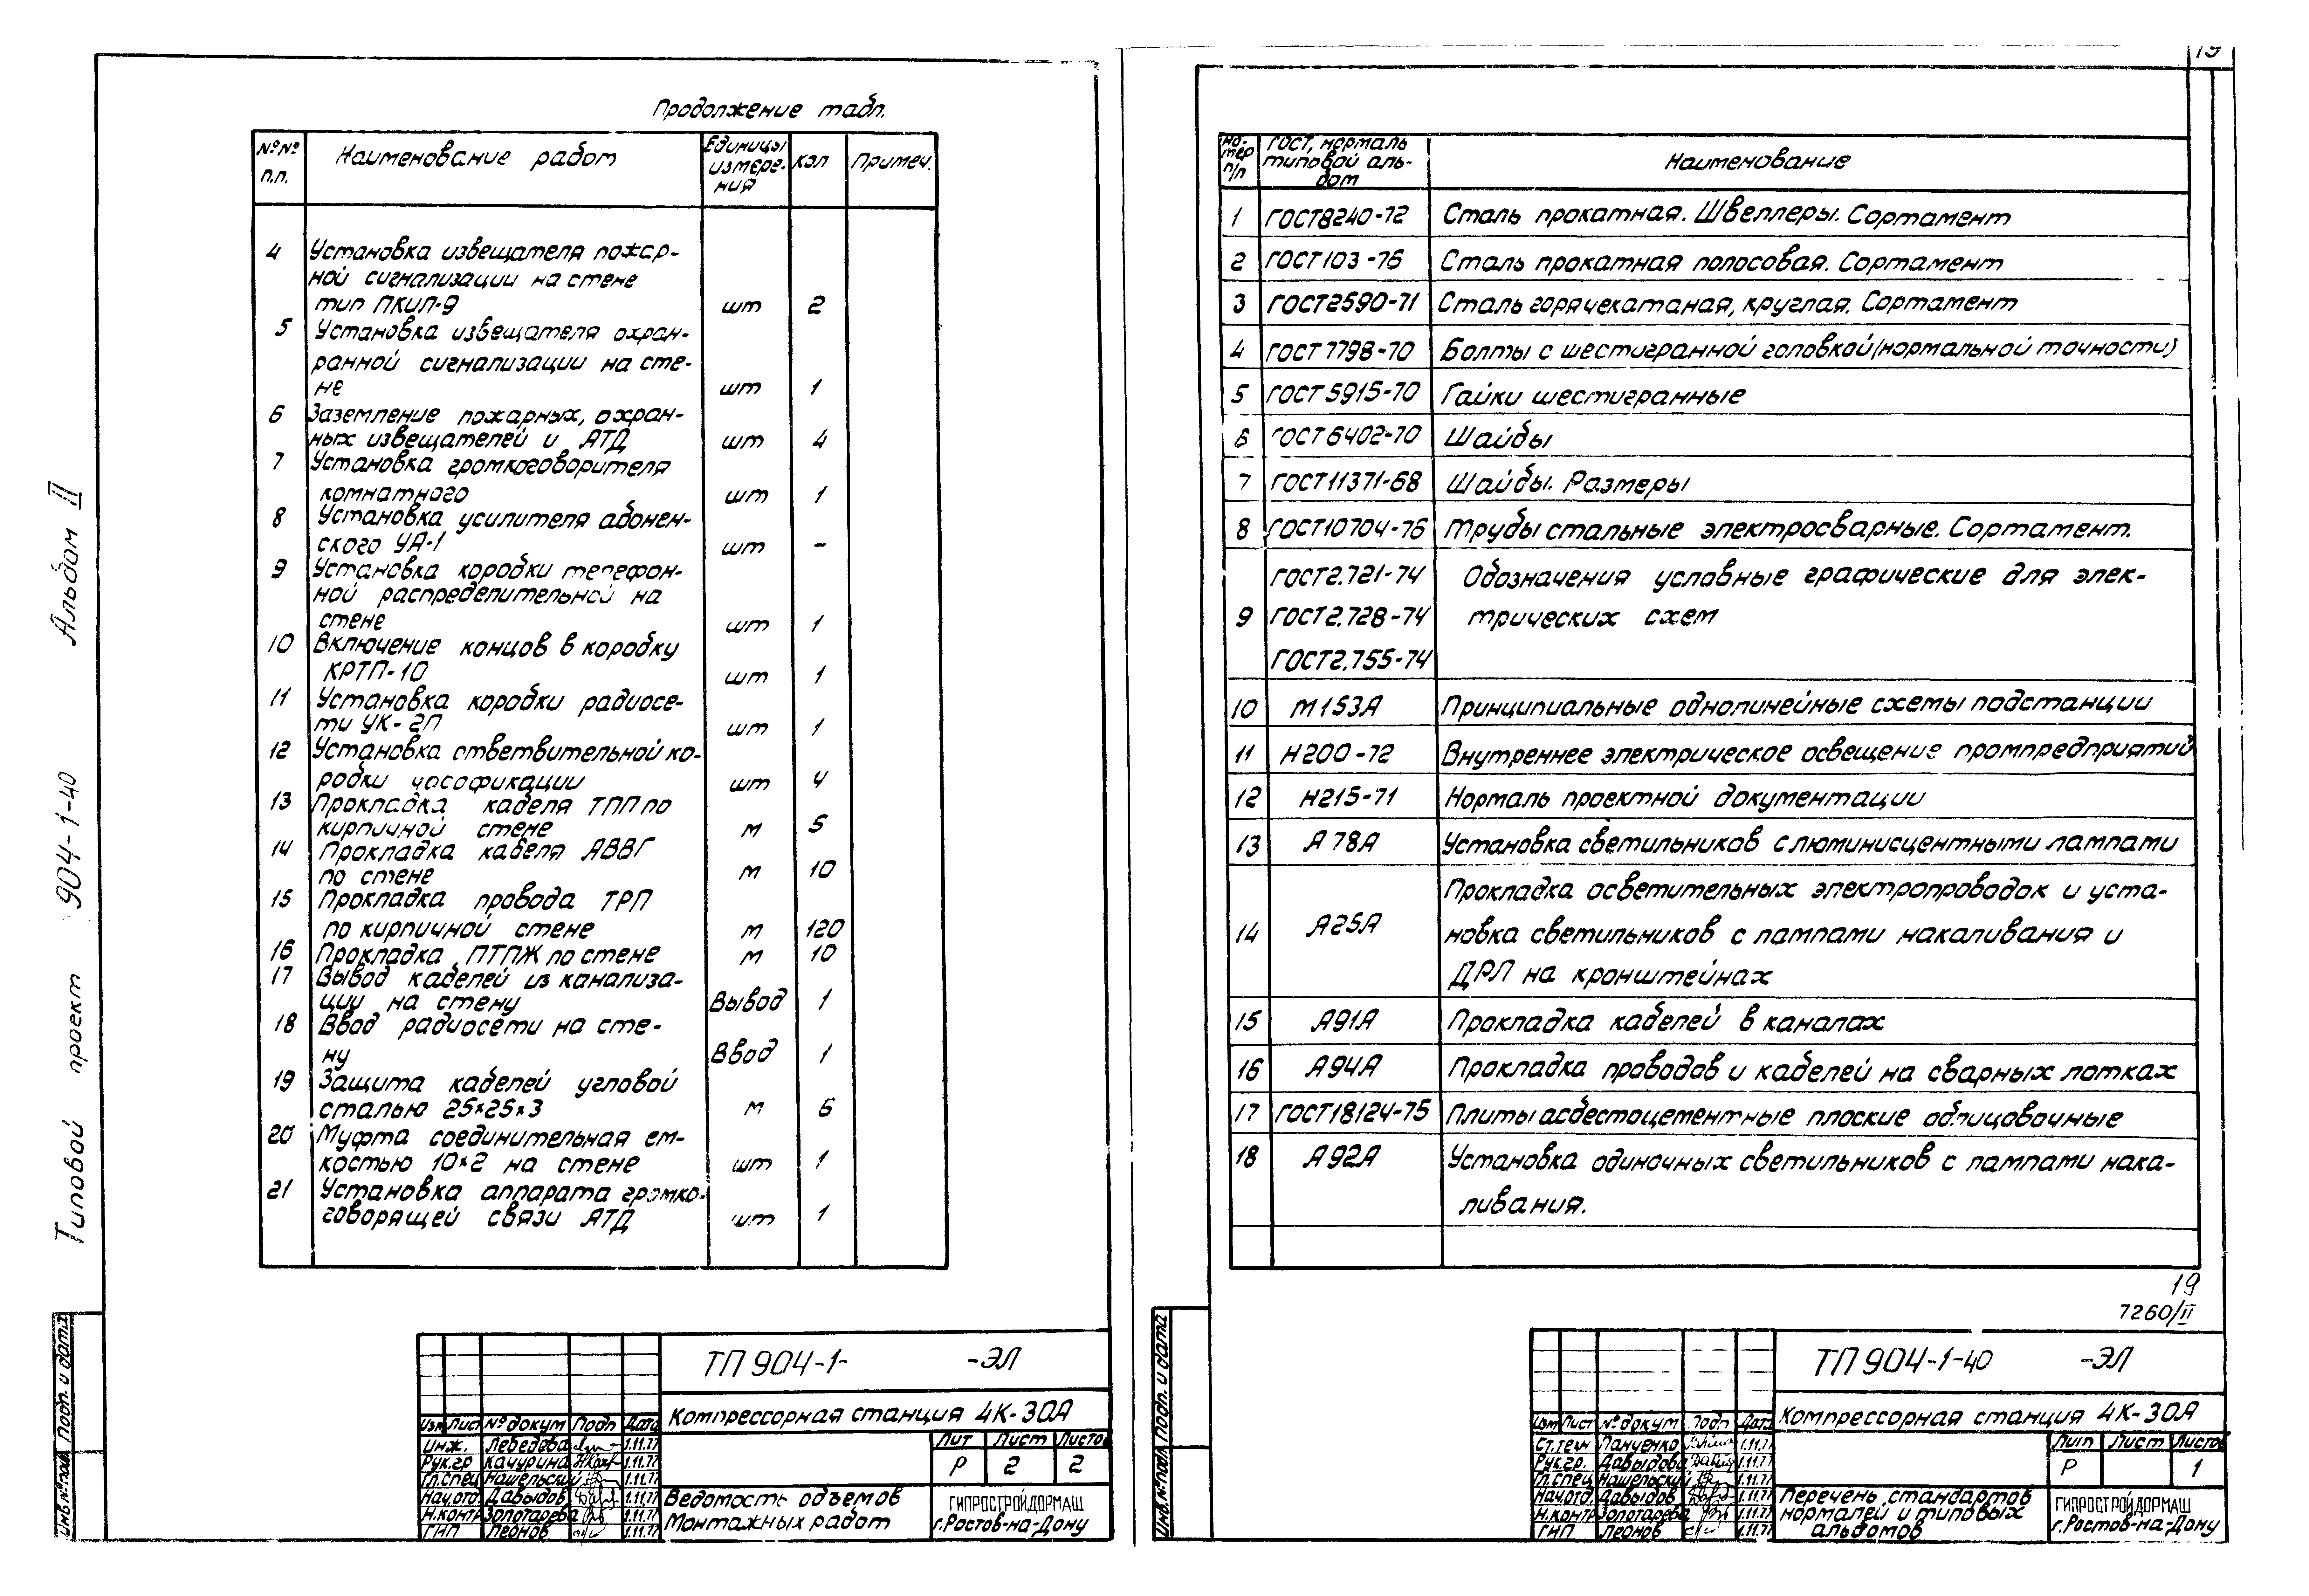 Типовой проект 904-1-40 Альбом II
Продолжение табл.
№№ п.п. Наименование работ Единицы измере- ния кол Примеч.
4 Установка извещателя пожар-
ной сигнализации на стене
тип ПКИЛ-9 шт 2
5 Установка извещателя охран-
ранной сигнализации на сте-
не шт 1
6 Заземление пожарных, охран-
ных извещателей и АТД шт 4
7 Установка громкоговорителя
комнатного шт 1
8 Установка усилителя абонен-
ского УА-1 шт –
9 Установка коробки телефон-
ной распределительной на
стене шт 1
10 Включение концов в коробку
КРТП-10 шт 1
11 Установка коробки радиосе-
ти УК-2П шт 1
12 Установка ответвительной ко-
робки часофикации шт 4
13 Прокладка кабеля ТПП по
кирпичной стене м 5
14 Прокладка кабеля АВВГ
по стене м 10
15 Прокладка провода ТРП
по кирпичной стене м 120
16 Прокладка ПТПЖ по стене м 10
17 Вывод кабелей из канализа-
ции на стену Вывод 1
18 Ввод радиосети на сте-
ну Ввод 1
19 Защита кабелей угловой
сталью 25×25×3 м 6
20 Муфта соединительная ем-
костью 10×2 на стене шт 1
21 Установка аппарата громко-
говорящей связи АТД шт 1
Инв.№ подл. Подп. и дата
ТП 904-1- -ЭЛ
Компрессорная станция 4К-30А
Изм Лист № докум Подп Дата
Инж. Лебедева 1.11.77
Рук.гр Качурина 1.11.77
Гл.спец Нашельский 1.11.77
Нач.отд. Давыдов 1.11.77
Н.контр Золотарева 1.11.77
ГИП Леонов 1.11.77
Лит Лист Листов
Р 2 2
Ведомость объемов
монтажных работ
ГИПРОСТРОЙДОРМАШ
г.Ростов-на-Дону
19
Но- мер п/п ГОСТ, нормаль типовой аль- бом Наименование
1 ГОСТ8240-72 Сталь прокатная. Швеллеры. Сортамент
2 ГОСТ103-76 Сталь прокатная полосовая. Сортамент
3 ГОСТ2590-71 Сталь горячекатаная, круглая. Сортамент
4 ГОСТ7798-70 Болты с шестигранной головкой(нормальной точности)
5 ГОСТ5915-70 Гайки шестигранные
6 ГОСТ6402-70 Шайбы
7 ГОСТ11371-68 Шайбы. Размеры
8 ГОСТ10704-76 Трубы стальные электросварные. Сортамент.
9 ГОСТ2.721-74 Обозначения условные графические для элек-
ГОСТ2.728-74 трических схем
ГОСТ2.755-74
10 М153А Принципиальные однолинейные схемы подстанции
11 Н200-72 Внутреннее электрическое освещение промпредприятий
12 Н215-71 Нормаль проектной документации
13 А78А Установка светильников с люминисцентными лампами
14 А25А Прокладка осветительных электропроводок и уста-
новка светильников с лампами накаливания и
ДРЛ на кронштейнах
15 А91А Прокладка кабелей в каналах
16 А94А Прокладка проводов и кабелей на сварных лотках
17 ГОСТ18124-75 Плиты асбестоцементные плоские облицовочные
18 А92А Установка одиночных светильников с лампами нака-
ливания.
19
7260/II
Инв.№ подл. Подп. и дата
ТП 904-1-40 -ЭЛ
Компрессорная станция 4К-30А
Изм Лист № докум Подп Дата
Ст.техн Панченко 1.11.77
Рук.гр. Давыдова 1.11.77
Гл.спец Нашельский 1.11.77
Нач.отд. Давыдов 1.11.77
Н.контр Золотарева 1.11.77
ГИП Леонов 1.11.77
Лит Лист Листов
Р 1
Перечень стандартов
нормалей и типовых
альбомов
ГИПРОСТРОЙДОРМАШ
г.Ростов-на-Дону